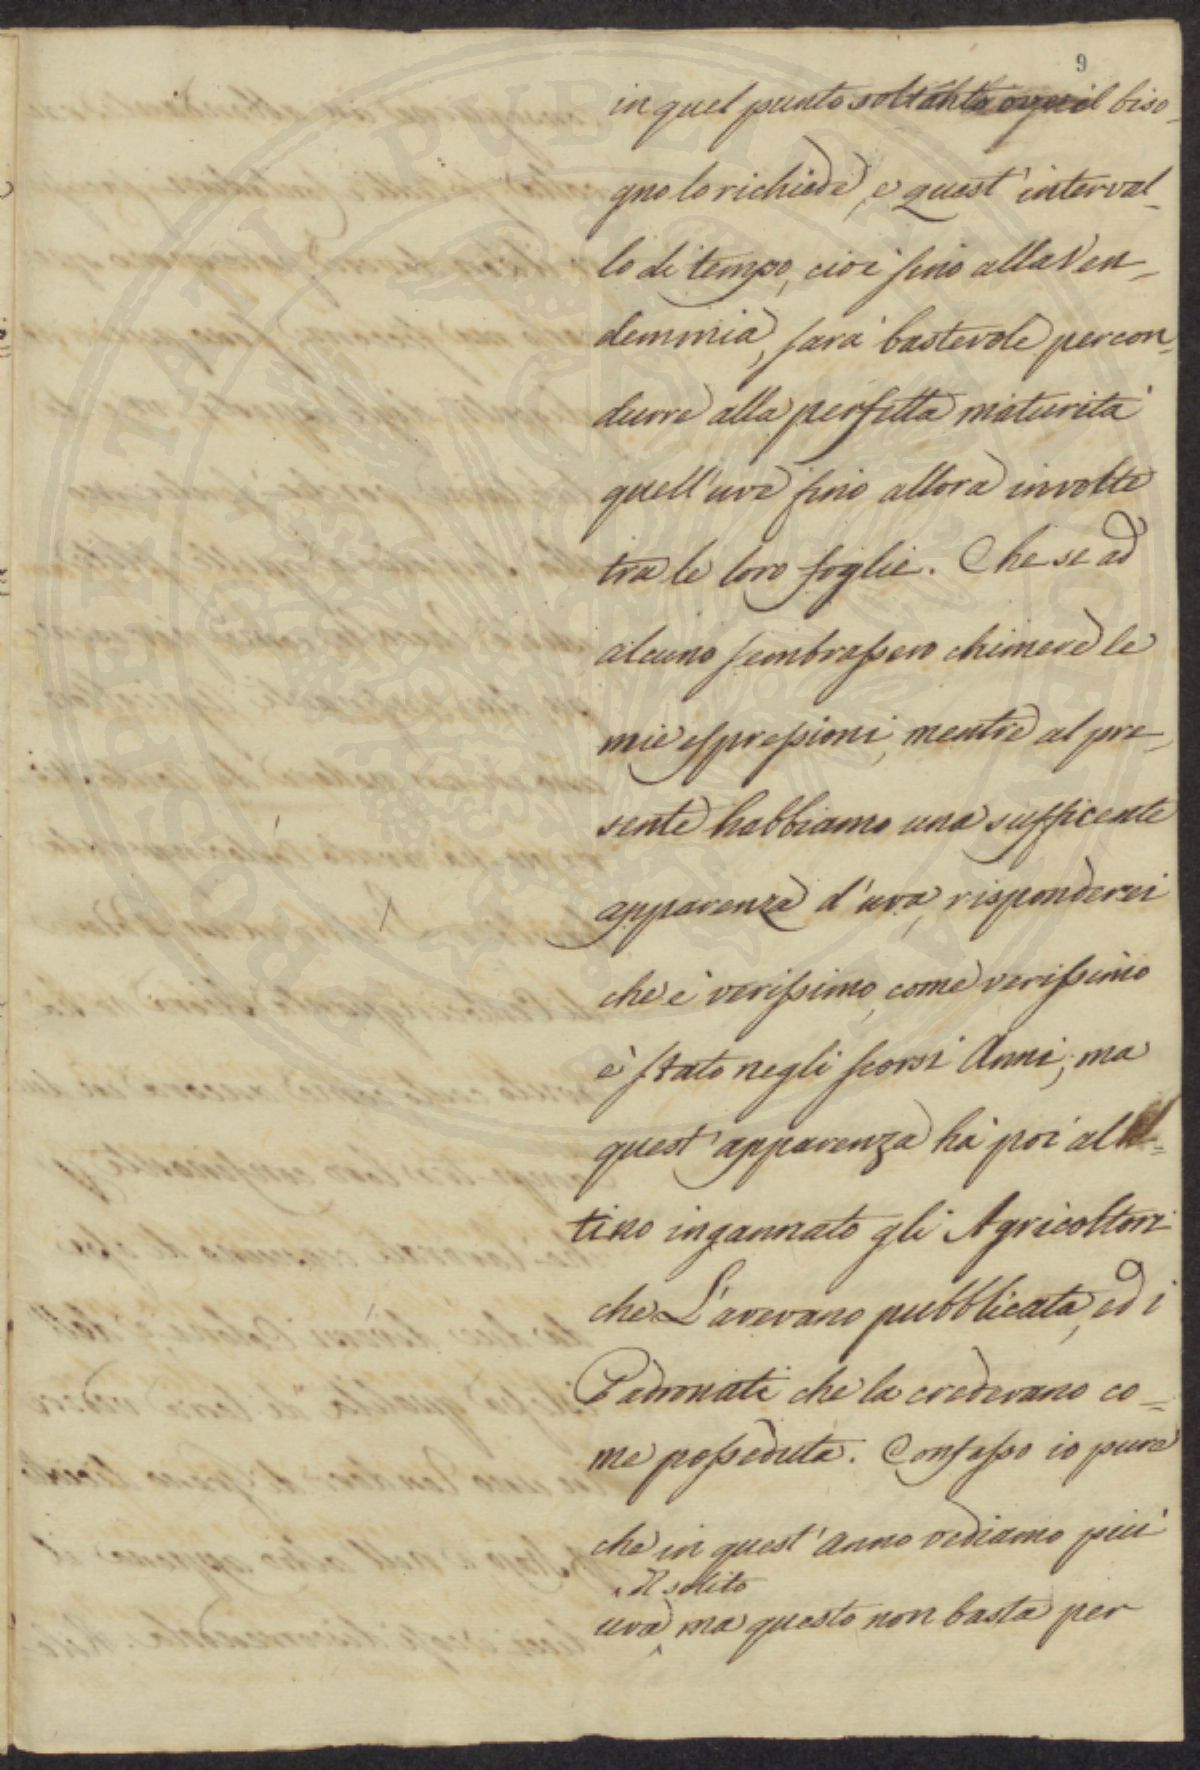 9
in quel punto soltanto ove il biso-
gno lo richiede, e quest'interval-
lo di tempo, cioè fino alla Ven-
demmia, sarà bastevole per con-
durre alla perfetta maturità
quell'uve fino allora involte
tra le loro foglie. Che se ad
alcuno sembrassero chimere le
mie espressioni, mentre al pre-
sente habbiamo una sufficente
apparenza d'uva, risponderei
che è verissimo, come verissimo
è stato negli scorsi Anni, ma
quest'apparenza hà poi al
timo ingannato gli Agricoltori
che L'avevano pubblicata, ed i
Padronati che la credevano co-
me posseduta. Confesso io pure
che in quest'anno vediamo più
del solito
uva ma questo non basta per